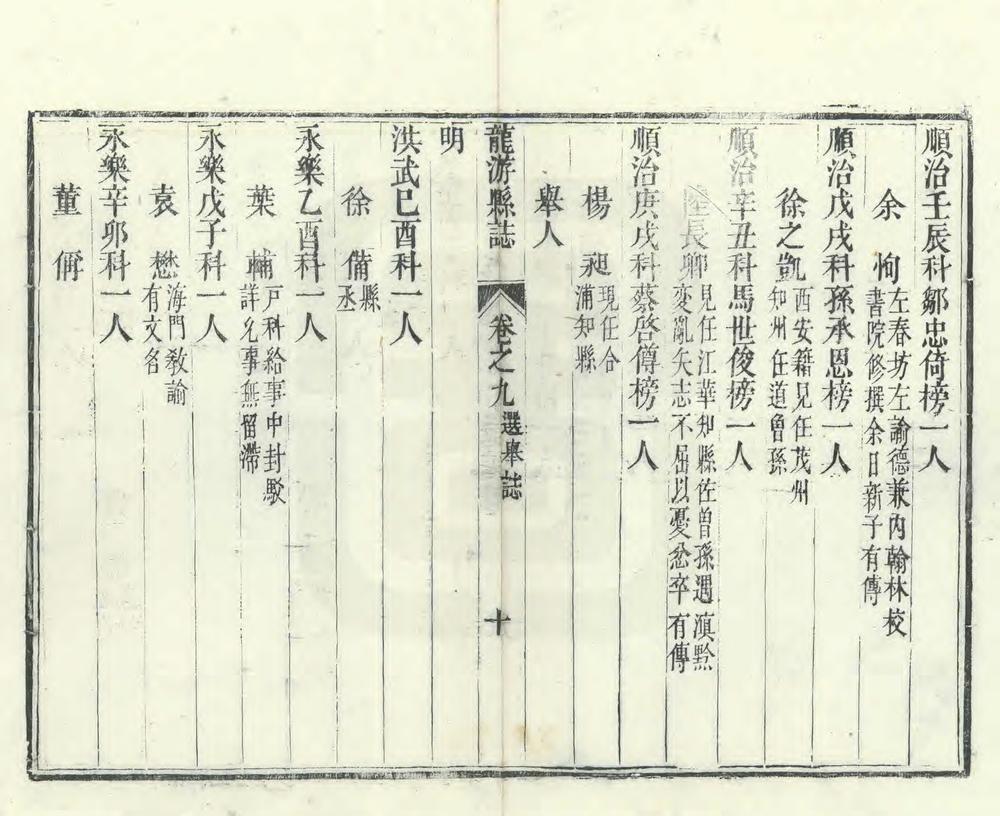 順治壬辰科鄒忠倚榜一人
余恂 左春坊左諭德兼內翰林校
書院修撰余日新子有傳
順治戊戌科孫承恩榜一人
徐之凱 西安籍見任茂州
知州任道魯孫
順治辛丑科馬世俊榜一人
陸長卿 見任江華知縣佐曾孫遇滇黔
変亂矢志不屈以憂忿卒有傳
順治庚戌科蔡啓僔榜一人
楊昶 現任合
浦知縣
舉人
龍游縣誌 卷之九 選舉誌 十
明
洪武己酉科一人
徐備 縣
丞
永樂乙酉科一人
葉輔 戸科給事中封駁
詳允事無留滯
永樂戊子科一人
袁懋 海門敎諭
有文名
永樂辛卯科一人
董偁